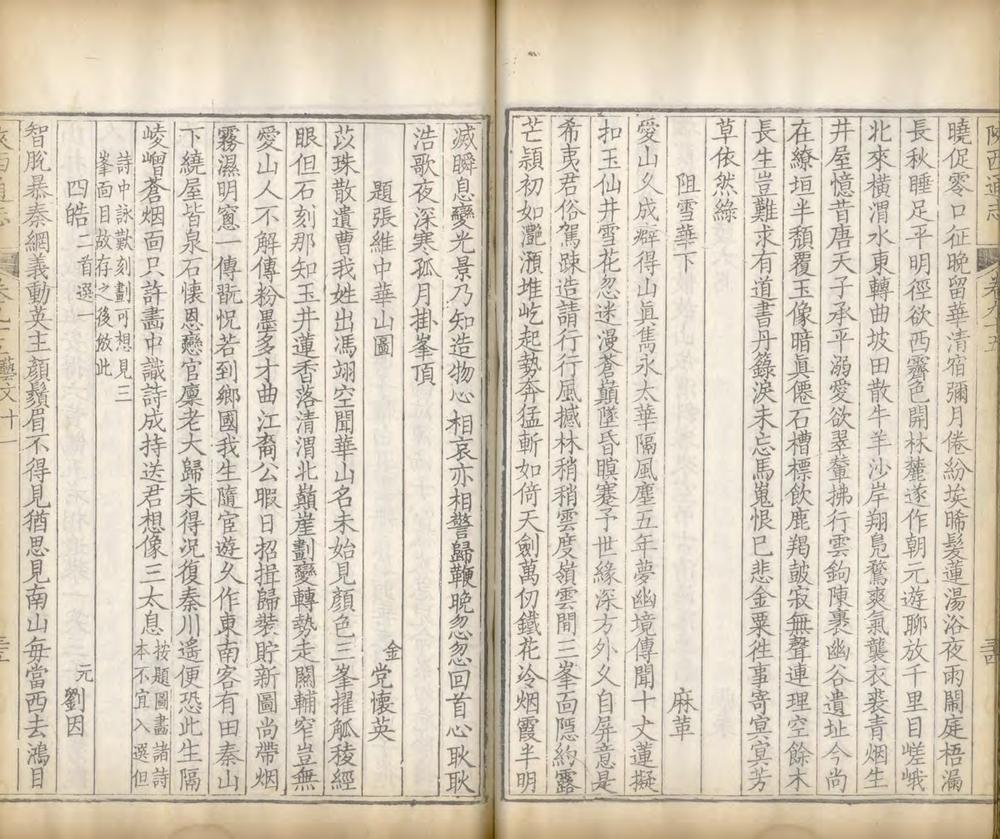 陝西通志 卷九十五
曉促零口征晚留華清宿彌月倦紛埃晞髮蓮湯浴夜雨鬧庭梧漏
長秋睡足平明徑欲西霽色開林麓遂作朝元遊聊放千里目嵯峨
北來橫渭水東轉曲坡田散牛羊沙岸翔鳧鶩爽氣襲衣裘青烟生
井屋憶昔唐天子承平溺愛欲翠輦拂行雲鉤陳裹幽谷遺址今尚
在繚垣半頹覆玉像暗眞僊石槽標飲鹿羯鼓寂無聲連理空餘木
長生豈難求有道書丹籙淚未忘馬嵬恨已悲金粟徃事寄㝠㝠芳
草依然綠
阻雪華下 麻革
愛山久成癖得山眞雋永太華隔風塵五年夢幽境傳聞十丈蓮擬
扣玉仙井雪花忽迷漫蒼巔墜昏瞑蹇予世緣深方外久自屏意是
希夷君俗駕踈造請行行風撼林稍稍雲度嶺雲間三峯面隱約露
芒頴初如灔澦堆屹起勢奔猛斬如倚天劍萬仞鐵花冷烟霞半明
滅瞬息變光景乃知造物心相哀亦相警歸鞭晚忽忽回首心耿耿
浩歌夜深寒孤月掛峯頂
題張維中華山圖 金 党懷英
苡珠散遺曹我姓出馮翊空聞華山名未始見顏色三峯擢觚稜經
眼但石刻那知玉井蓮香落清渭北巔崖劃變轉勢走關輔窄豈無
愛山人不解傳粉墨多才曲江裔公暇日招揖歸裝貯新圖尚帶烟
霧濕明窻一傳翫怳若到鄉國我生隨宦遊久作東南客有田秦山
下繞屋皆泉石懷恩戀官廩老大歸未得況復秦川遙便恐此生隔
崚嶒蒼烟面只許畵中識詩成持送君想像三太息 按題圖畵諸詩本不宜入選但
詩中詠歎刻劃可想見三峯面目故存之後倣此
四皓二首選一 元 劉因
智脫暴秦網義動英主顏鬚眉不得見猶思見南山每當西去鴻目